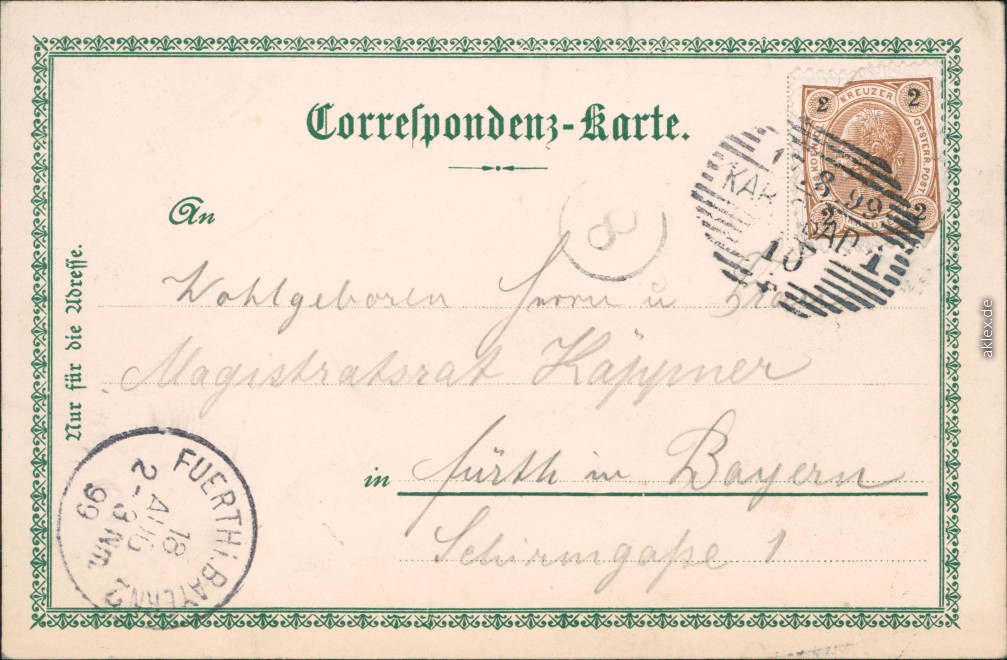 Correſpondenz-Karte.
2 KREUZER 2
OESTERR. POST
2 2
17 8 99
KAR BAD 1
10
An
8
Nur für die Adreſſe.
Wohlgeboren Herrn u Frau
Magistratsrat Käppner
in Fürth in Bayern
Schirmgaße 1
FUERTH i. BAYERN 2
18 AUG
2-3 Nm.
99
aklex.de